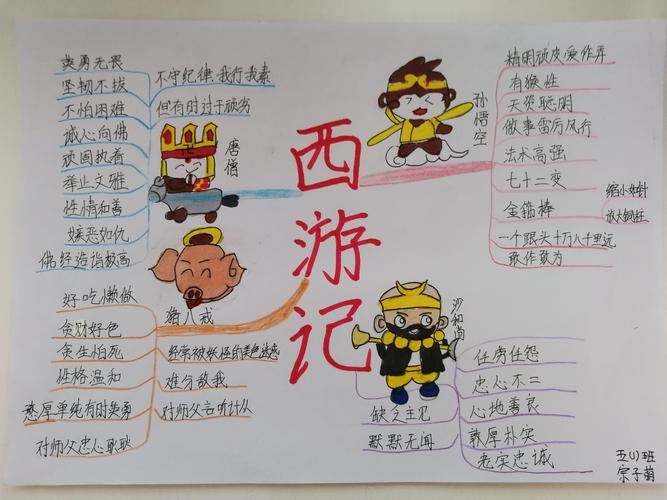 西游记
唐僧
英勇无畏
坚韧不拔
不怕困难
诚心向佛
顽固执着
举止文雅
性情和善
嫉恶如仇
佛经造诣极高
不守纪律,我行我素
但有时过于顽劣
孙悟空
精明顽皮爱作弄
有猴性
天资聪明
做事雷厉风行
法术高强
七十二变
金箍棒
缩小如针
放大如柱
一个跟头十万八千里远
敢作敢为
猪八戒
好吃懒做
贪财好色
贪生怕死
性格温和
憨厚单纯有时英勇
对师父忠心耿耿
经常被妖怪的美色迷惑
难分敌我
对师父言听计从
沙和尚
任劳任怨
忠心不二
心地善良
敦厚朴实
老实忠诚
缺乏主见
默默无闻
五(1)班
宗子萌